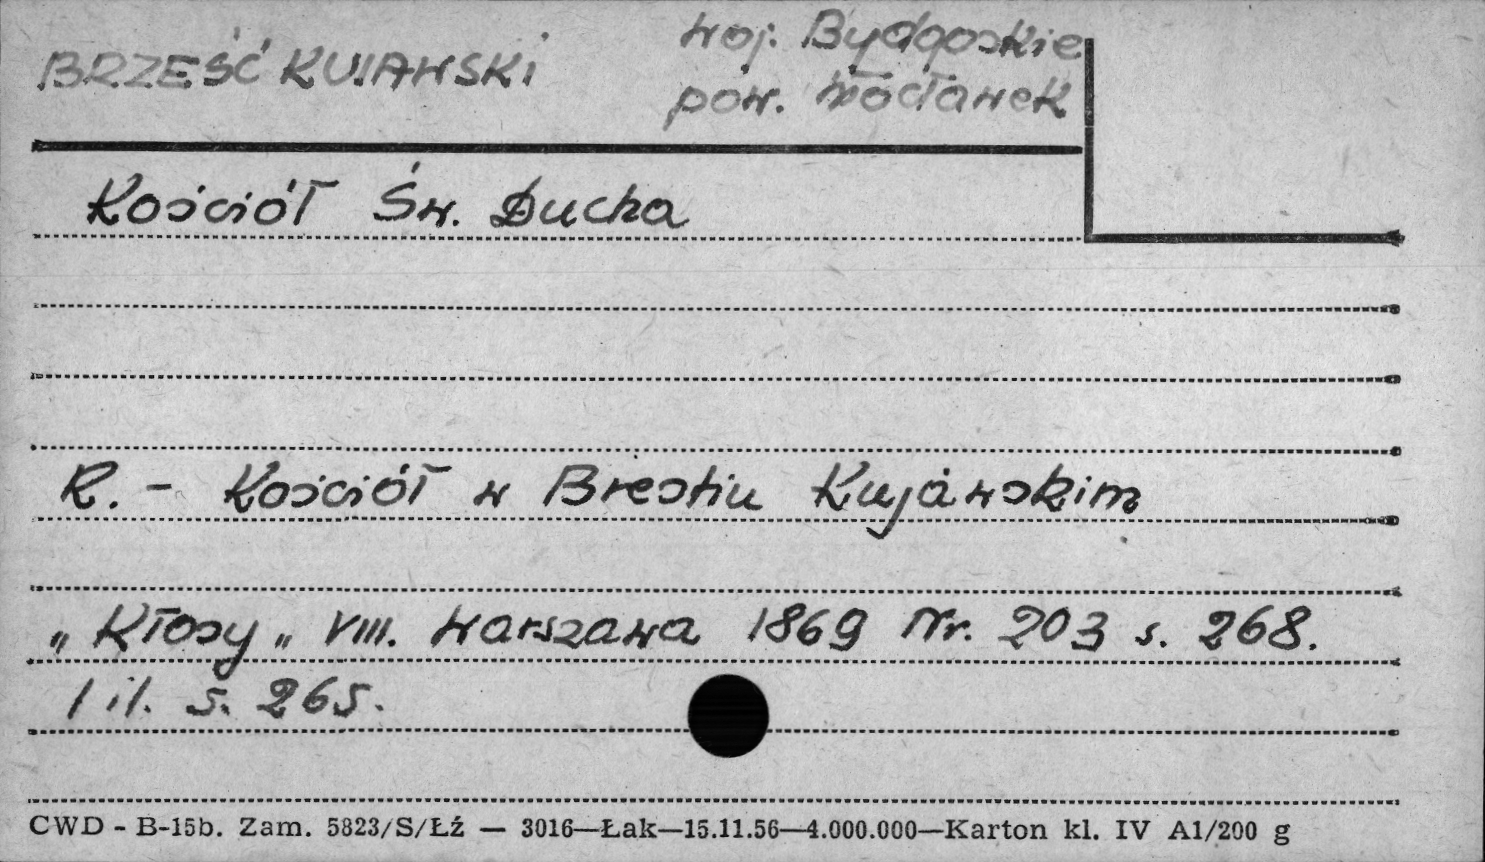 BRZEŚĆ KUJAWSKI
woj. Bydgoskie
pow. Włocławek
Kościół Św. Ducha
R. - Kościół w Brestiu Kujáwskim
„Kłosy„ VIII. Warszawa 1869 Nr. 203 s. 268.
1 il. s. 265.
CWD - B-15b. Zam. 5823/S/Łź — 3016—Łak—15.11.56—4.000.000—Karton kl. IV A1/200 g